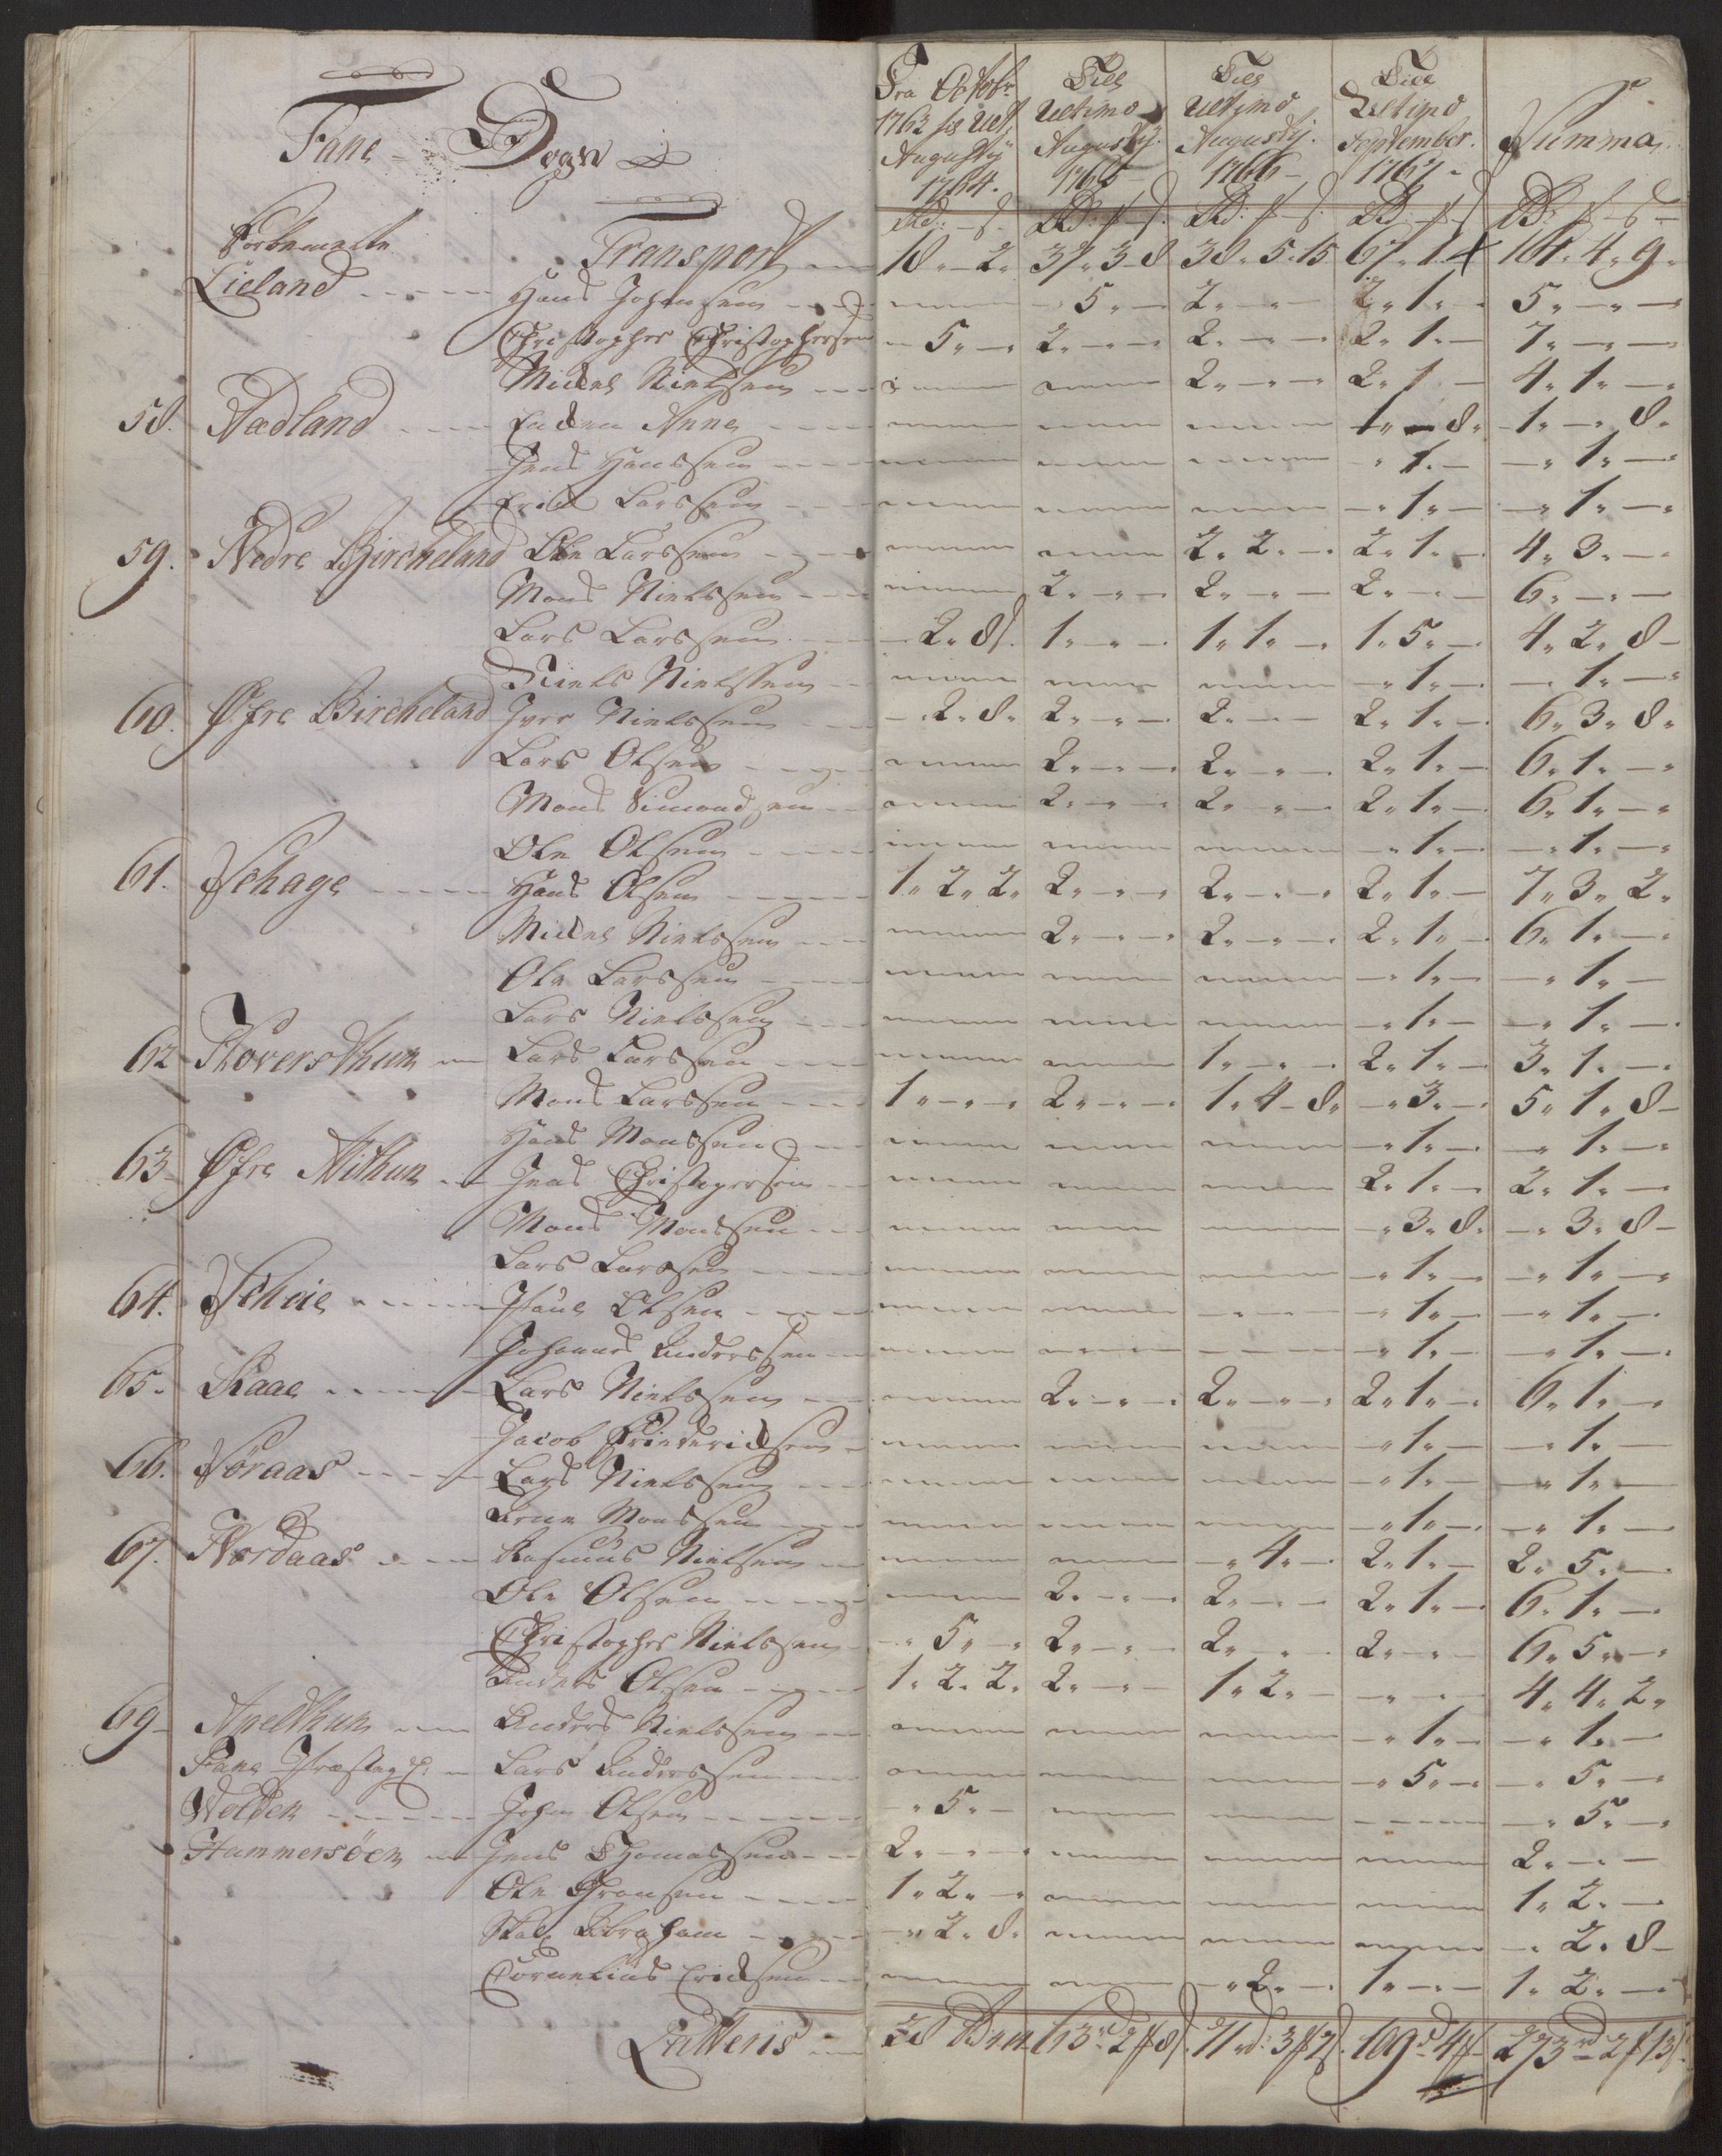 Fane Sogn
Fra Octobr 1763 til Ult. Augustij 1764.
Till Ultimo Augustij. 1765
Till Ultimo Augustij. 1766
Till Ultimo September. 1767
Summa
Rd: s. Rd. ƒ s. Rd: ƒ s. Rd ƒ s Rd: ƒ s
Forbemelte Transport 18. - 2. 37. 3. 8 38. 5. 15 67. 1. 4 161. 4. 9.
Lieland Hans Johansen - 5. - 2. - - 2. 1. - 5. - -
Christopher Christophersen - 5. - 2. - - 2. - - 2. 1. - 7. - -
Mickel Nielsen 2. - - 2. 1. - 4. 1. -
58. Aadland Enken Anne 1. - 8. 1. - 8.
Jens Hanssen - 1. - - 1. -
Erick Larssen - 1. - - 1. -
59. Nedre Bircheland Ole Larssen 2. 2. - 2. 1. - 4. 3. -
Mons Nielssen 2. - - 2. - - 2. - - 6. - -
Lars Larssen - 2. 8 1. - - 1. 1. - 1. 5. - 4. 2. 8
Niels Nielssen - 1. - - 1. -
60. Øfre Bircheland Iver Nielssen - 2. 8. 2. - - 2. - - 2. 1. - 6. 3. 8.
Lars Olsen 2. - - 2. - - 2. 1. - 6. 1. -
Mons Simonsen 2. - - 2. - - 2. 1. - 6. 1. -
Ole Olsen - 1. - - 1. -
61. Schage Hans Olsen 1. 2. 2. 2. - - 2. - - 2. 1. - 7. 3. 2.
Mickel Nielssen 2. - - 2. - - 2. 1. - 6. 1. -
Ole Larssen - 1. - - 1. -
Lars Nielssen - 1. - - 1. -
62 Lars Larssen 1. - - 2. 1. - 3. 1. -
Mons Larssen 1. - - 2. - - 1. 4. 8. - 3. - 5. 1. 8
Hans Monssen - 1. - - 1. -
63 Øfre Jens Christopersen 2. 1. - 2. 1. -
Mons Monssen - 3. 8. - 3. 8
Lars Larssen - 1. - - 1. -
64. Scheie Paul Olsen - 1. - - 1. -
Johannes Anderssen - 1. - - 1. -
65. Raae Lars Nielssen 2. - - 2. - - 2. 1. - 6. 1. -
Jacob Friedericksen - 1. - - 1. -
66. Søraas Lars Nielssen - 1. - - 1. -
Arne Monssen - 1. - - 1. -
67. Nordaas Rasmus Nielsen - 4. - 2. 1. - 2. 5. -
Ole Olsen 2. - - 2. - - 2. 1. - 6. 1. -
Christopher Nielssen - 5. - 2. - - 2. - - 2. - - 6. 5. -
Anders Olsen 1. 2. 2. 2. - - 1. 2. - - - - 4. 4. 2.
69 Apelthun Anders Nielssen - 1. - - 1. -
Fane Præstegd: Lars Anderssen - 5. - - 5. -
Wolden Johan Olsen - 5. - - 5. -
Hammersöen Jens Thomassen 2. - - 2. - -
Ole 1. 2. - 1. 2. -
Abraham - 2. 8. - 2. 8
Cornelius Ericksen - 2. - 1. - - 1. 2. -
Latteris 28 63rd 2 ƒ 8 s. 71rd. 3 ƒ 7 s. 109rd 4 ƒ 273rd 2 ƒ 13 s